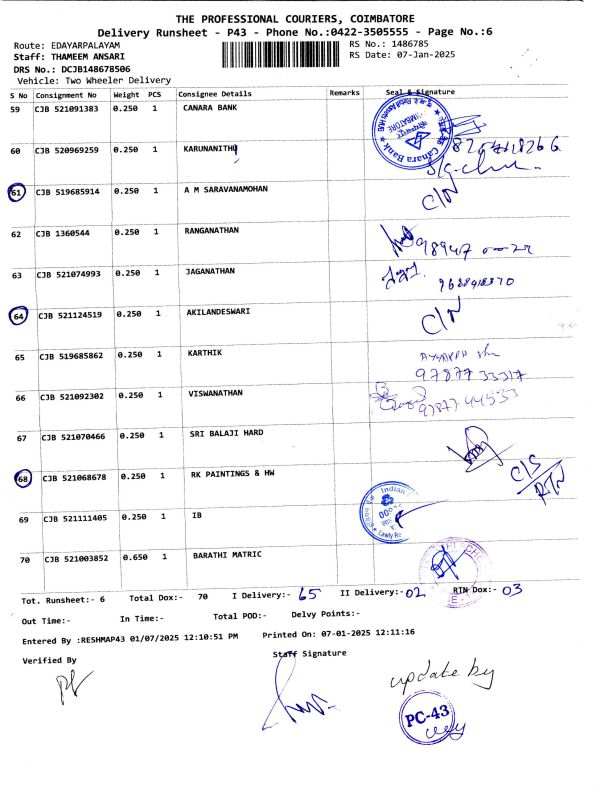 THE PROFESSIONAL COURIERS, COIMBATORE
Delivery Runsheet - P43 - Phone No.:0422-3505555 - Page No.:6
Route: EDAYARPALAYAM RS No.: 1486785
Staff: THAMEEM ANSARI RS Date: 07-Jan-2025
DRS No.: DCJB148678506
Vehicle: Two Wheeler Delivery
S No Consignment No Weight PCS Consignee Details Remarks Seal & Signature
59 CJB 521091383 0.250 1 CANARA BANK
Canara Bank
60 CJB 520969259 0.250 1 KARUNANITHI
61 CJB 519685914 0.250 1 A M SARAVANAMOHAN C/N
62 CJB 1360544 0.250 1 RANGANATHAN
63 CJB 521074993 0.250 1 JAGANATHAN
64 CJB 521124519 0.250 1 AKILANDESWARI C/N
65 CJB 519685862 0.250 1 KARTHIK
97877 33317
66 CJB 521092302 0.250 1 VISWANATHAN 97877 44533
67 CJB 521070466 0.250 1 SRI BALAJI HARD
68 CJB 521068678 0.250 1 RK PAINTINGS & HW C/S
RTN
69 CJB 521111405 0.250 1 IB
Indian
70 CJB 521003852 0.650 1 BARATHI MATRIC
Tot. Runsheet:- 6 Total Dox:- 70 I Delivery:- 65 II Delivery:- 02 RTN Dox:- 03
Out Time:- In Time:- Total POD:- Delvy Points:-
Entered By :RESHMAP43 01/07/2025 12:10:51 PM Printed On: 07-01-2025 12:11:16
Verified By Staff Signature
update by
PC-43